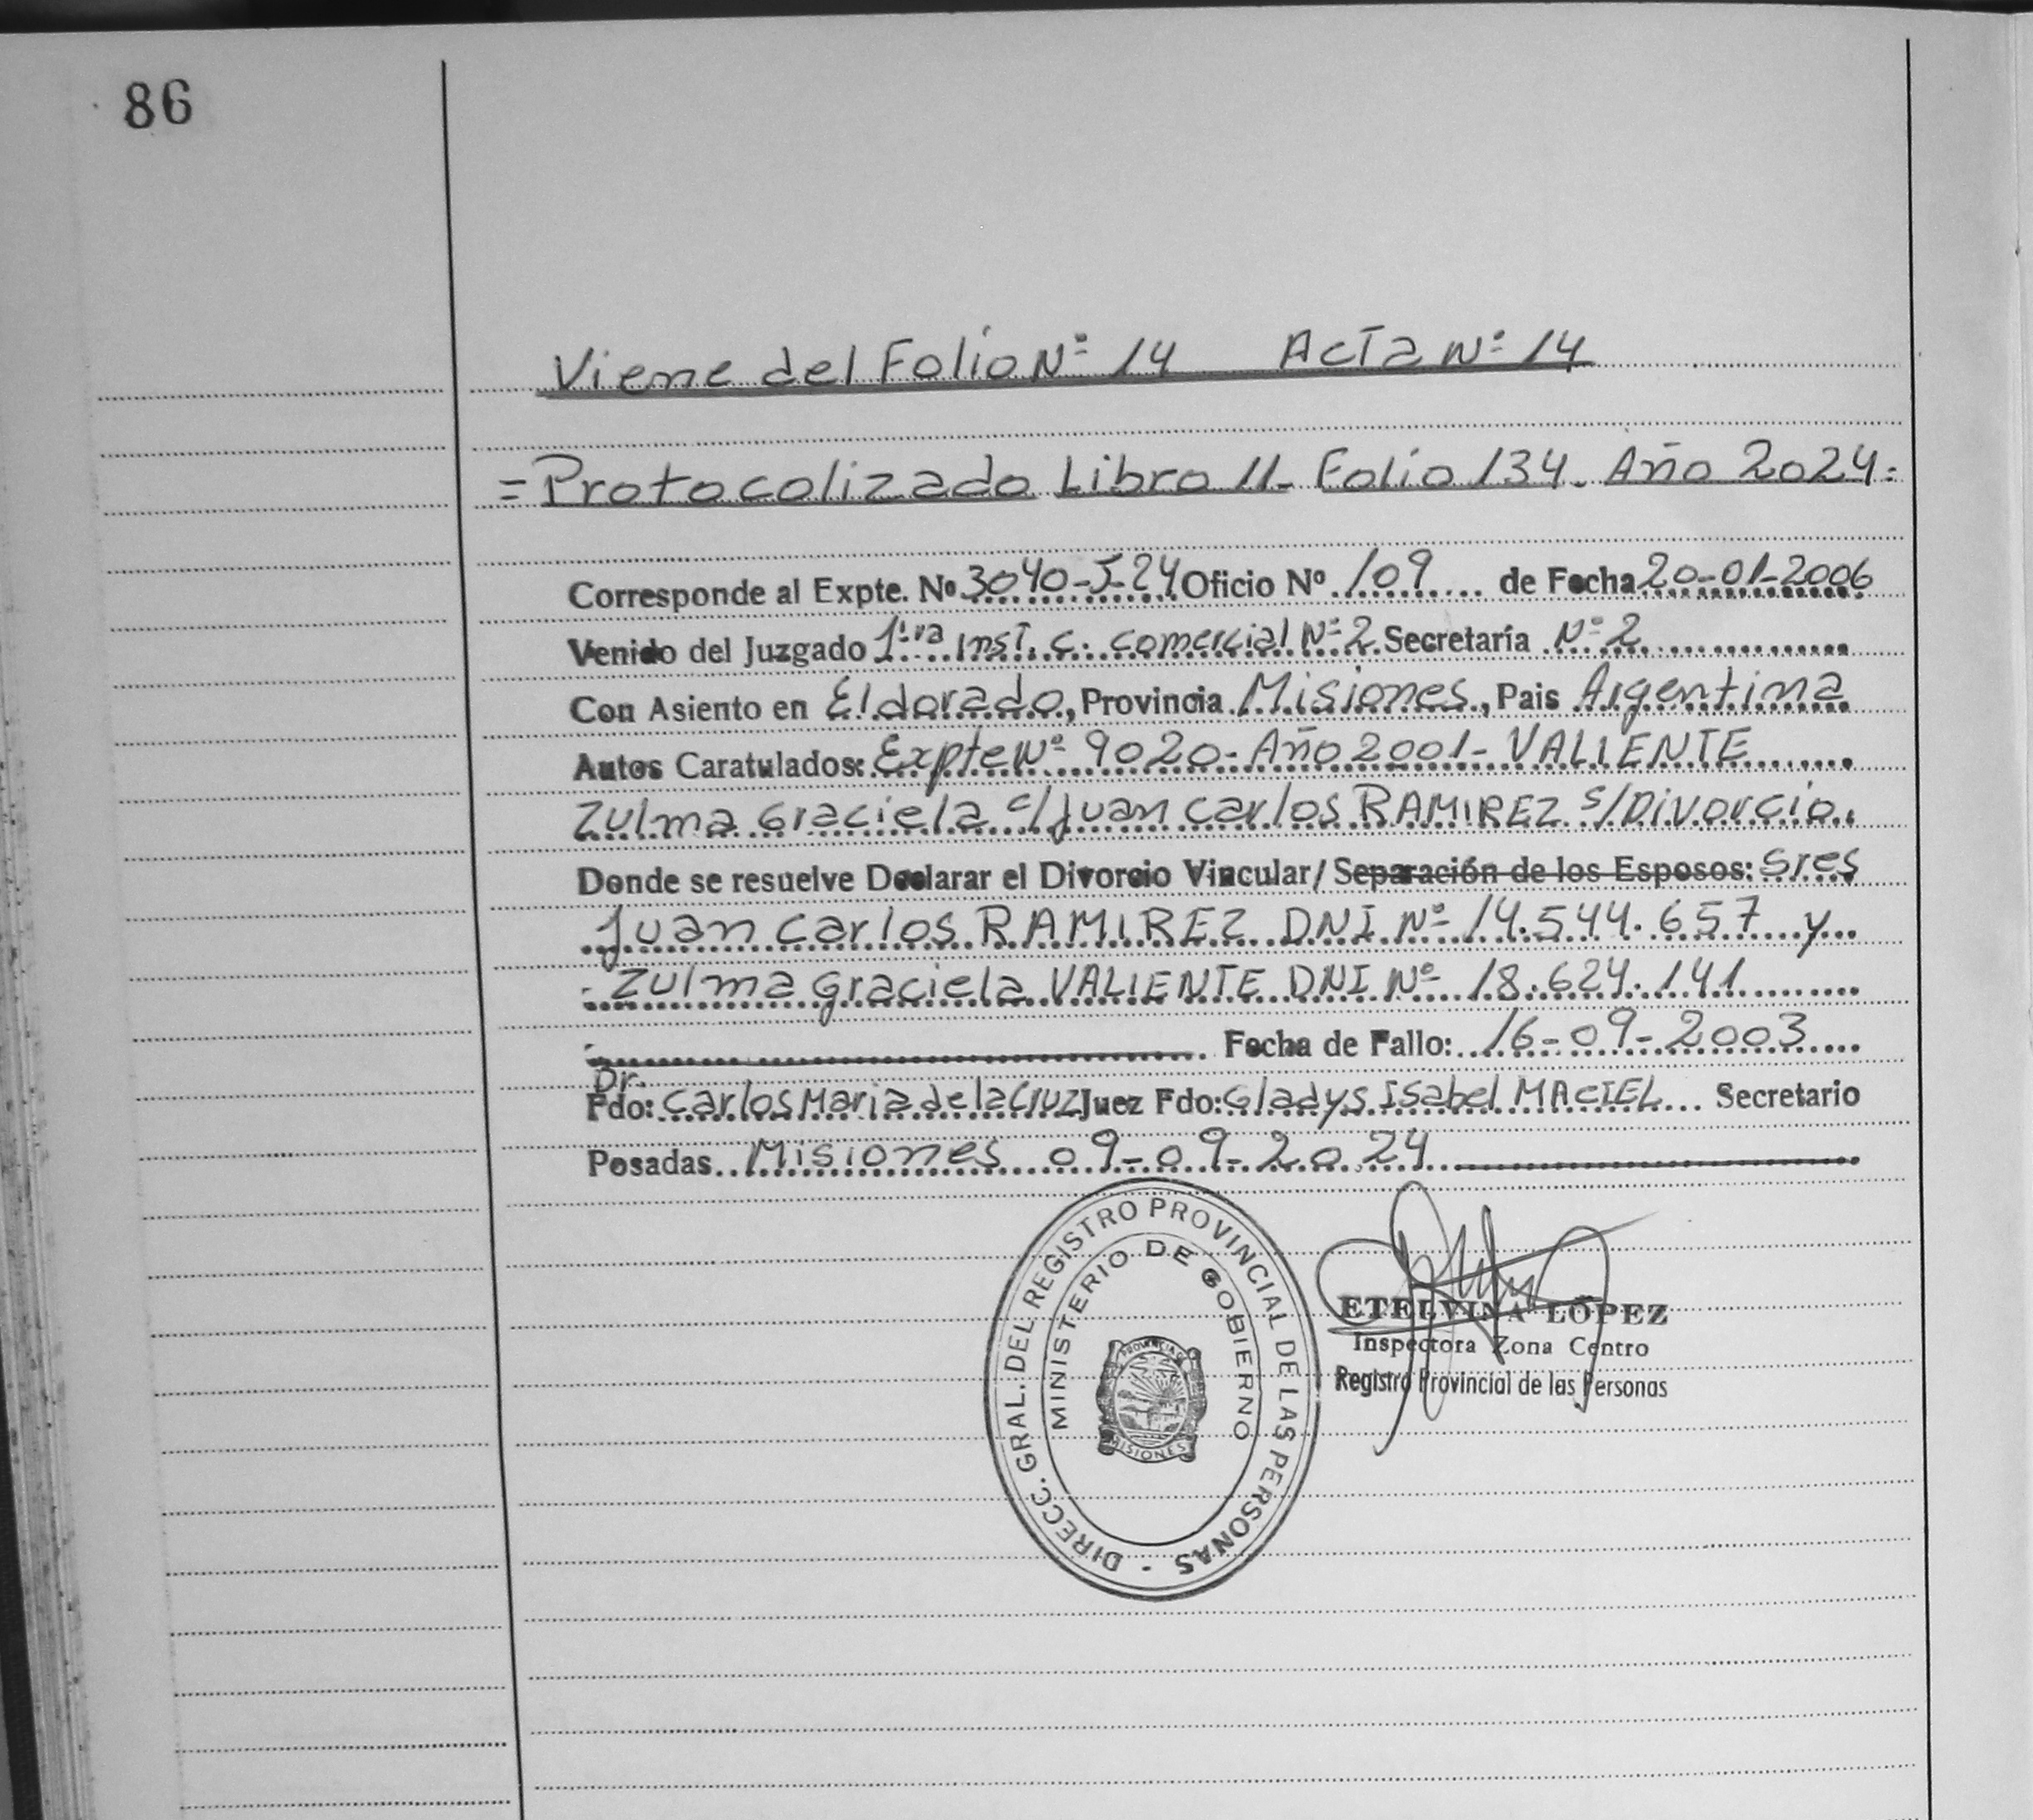 86
Viene del Folio Nº 14 Acta Nº 14
= Protocolizado Libro 11- Folio 134. Año 2024=
Corresponde al Expte. Nº 3040-J-24 Oficio Nº 109 de Fecha 20-01-2006
Venido del Juzgado 1ra Inst. C. Comercial Nº 2 Secretaría Nº 2
Con Asiento en Eldorado, Provincia Misiones, Pais Argentina
Autos Caratulados: Expte Nº 9020- Año 2001- VALIENTE
Zulma Graciela c/ Juan Carlos RAMIREZ s/ Divorcio.
Donde se resuelve Declarar el Divorcio Vincular/ Separación de los Esposos: Sres
Juan Carlos RAMIREZ DNI Nº 14.544.657 y
Zulma Graciela VALIENTE DNI Nº 18.624.141
Fecha de Fallo: 16-09-2003
Dr.
Fdo: Carlos Maria de la Cruz Juez Fdo: Gladys Isabel MACIEL Secretario
Posadas Misiones 09-09-2024
DIRECC. GRAL. DEL REGISTRO PROVINCIAL DE LAS PERSONAS -
MINISTERIO DE GOBIERNO
PROVINCIA
MISIONES
ETELVINA LÓPEZ
Inspectora Zona Centro
Registro Provincial de las Personas